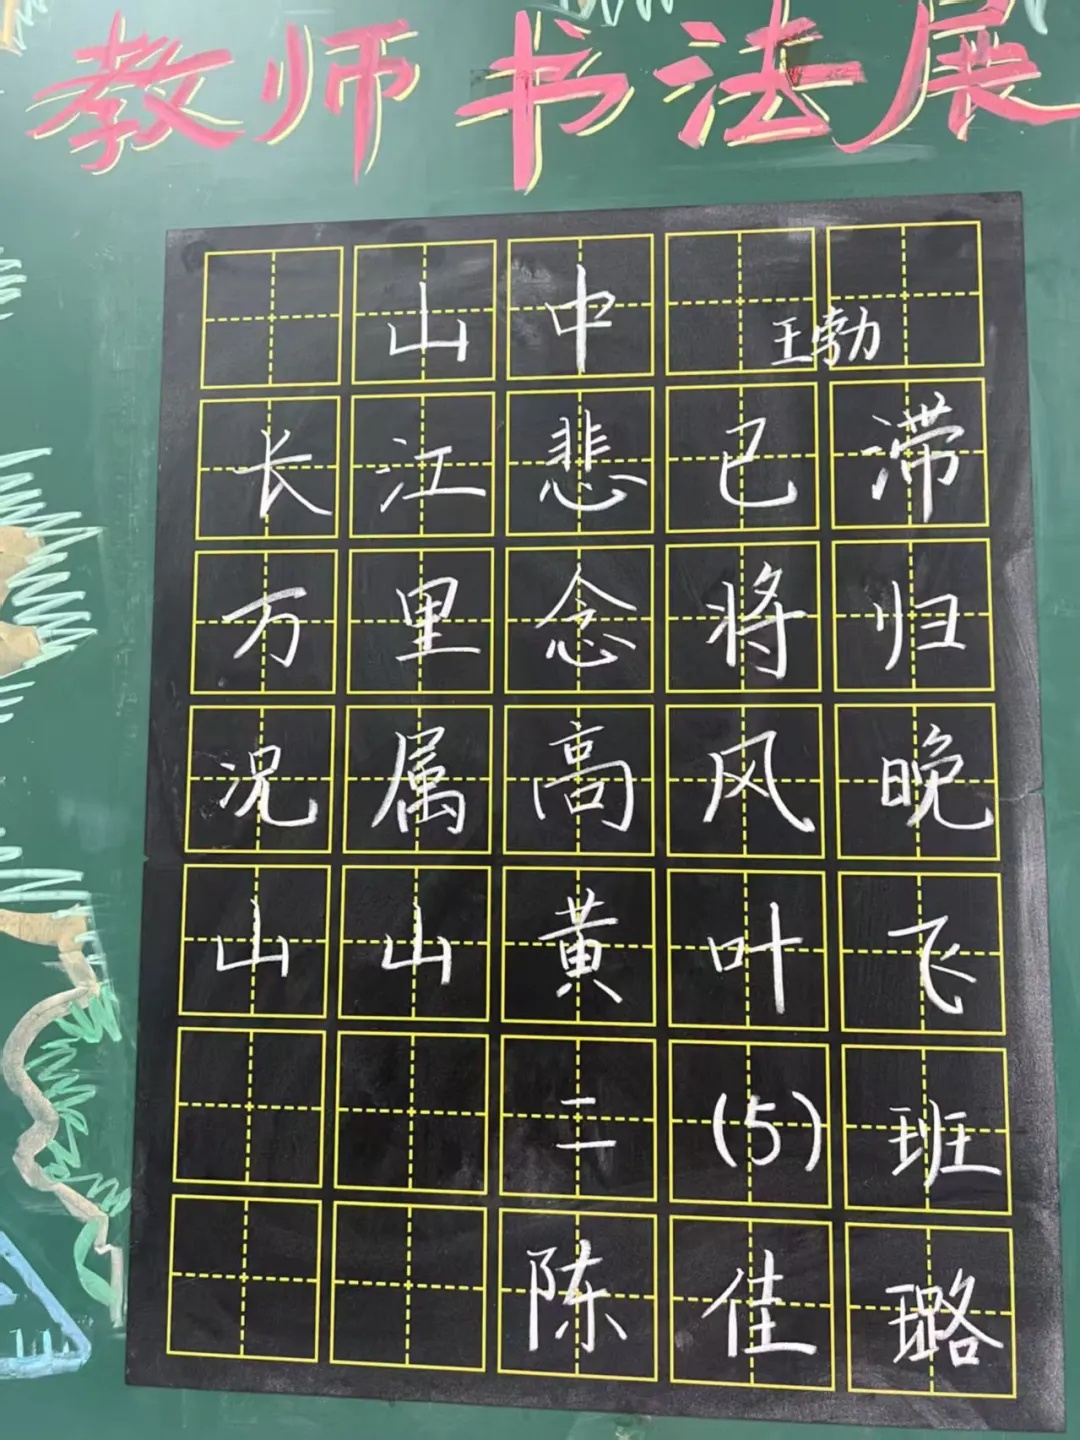 教师书法展
山中 王勃
长江悲已滞
万里念将归
况属高风晚
山山黄叶飞
二(5)班
陈佳璐